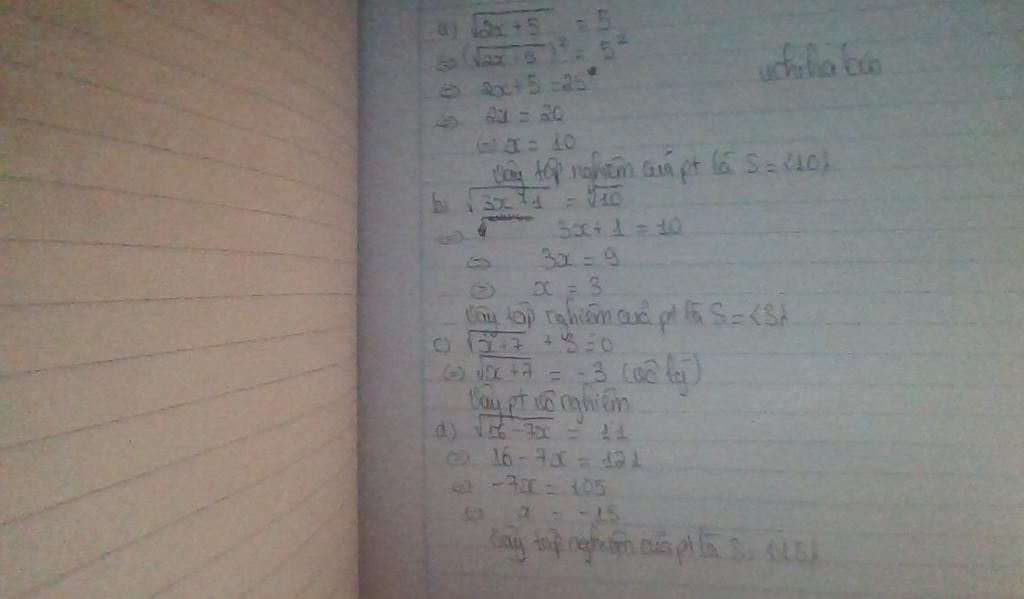 a) √2x+5 = 5
⇔ (√2x+5)² = 5²
uchiha bao
⇔ 2x+5 = 25
⇔ 2x = 20
⇔ x = 10
Vậy tập nghiệm của pt là S = {10}
b) √3x+1 = √10
⇔ 3x+1 = 10
⇔ 3x = 9
⇔ x = 3
Vậy tập nghiệm của pt là S = {3}
c) √x+7 + 3 = 0
⇔ √x+7 = -3 (vô lý)
Vậy pt vô nghiệm
d) √16-7x = 11
⇔ 16-7x = 121
⇔ -7x = 105
⇔ x = -15
Vậy tập nghiệm của pt là S = {15}